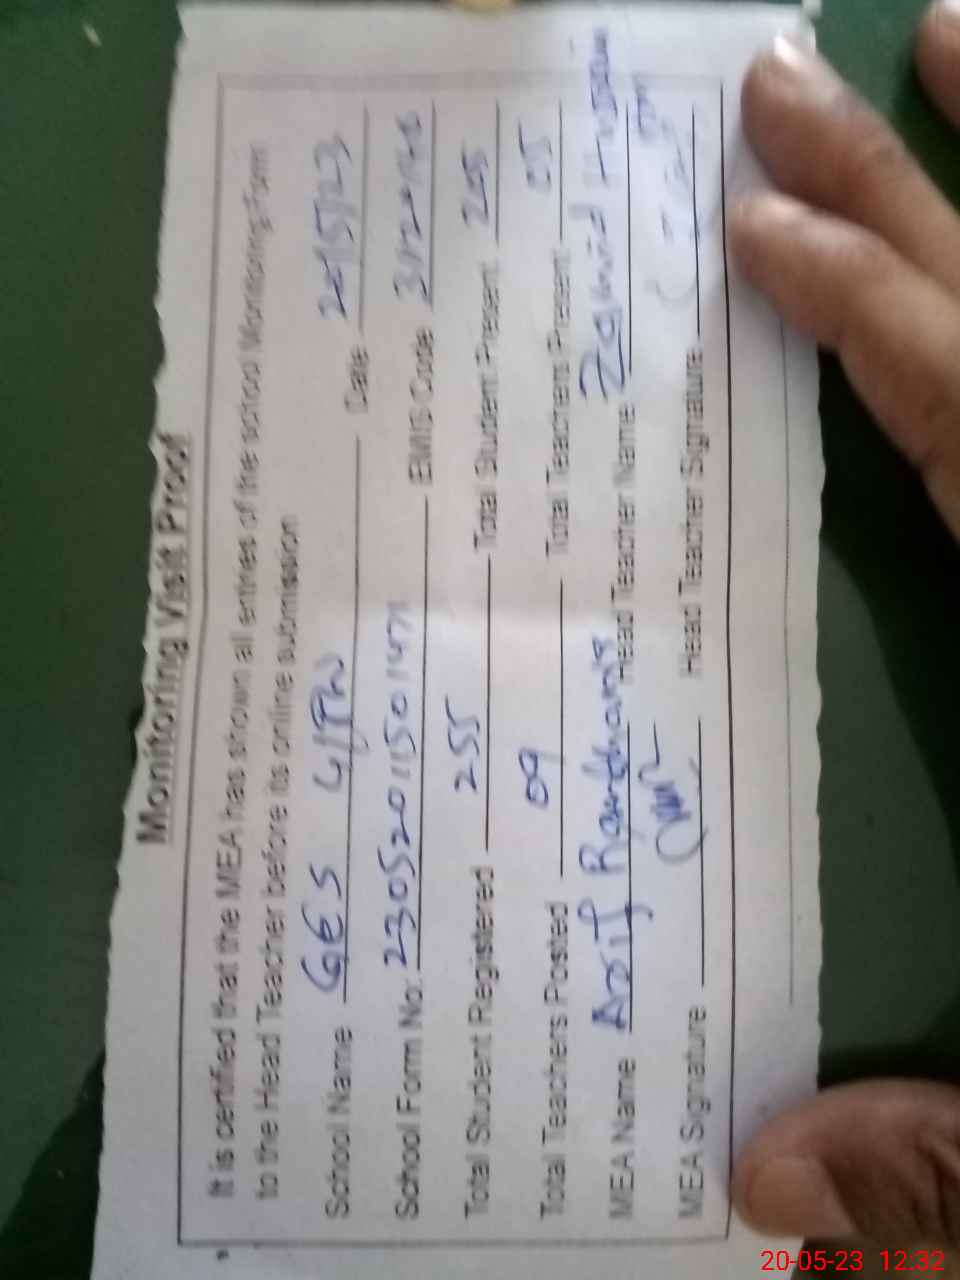 Monitoring Visit Proof
It is certified that the MEA has shown all entries of the school Monitoring Form
to the Head Teacher before its online submission
School Name GES 4/PW Date 20/5/23
School Form No: 230520115011471 EMIS Code
Total Student Registered 255 Total Student Present 205
Total Teachers Posted 09 Total Teachers Present 05
MEA Name Asif Head Teacher Name Zahid Hussain
MEA Signature Head Teacher Signature
20-05-23 12:32